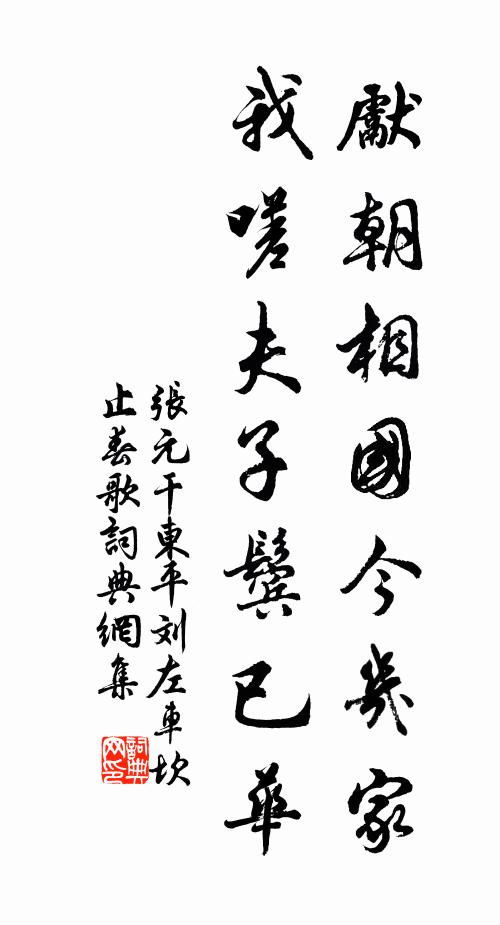 獻朝相國今幾家
我嗟夫子鬓已華
張元干東平刘左車坎
止春歌詞典網集
詞典
网印